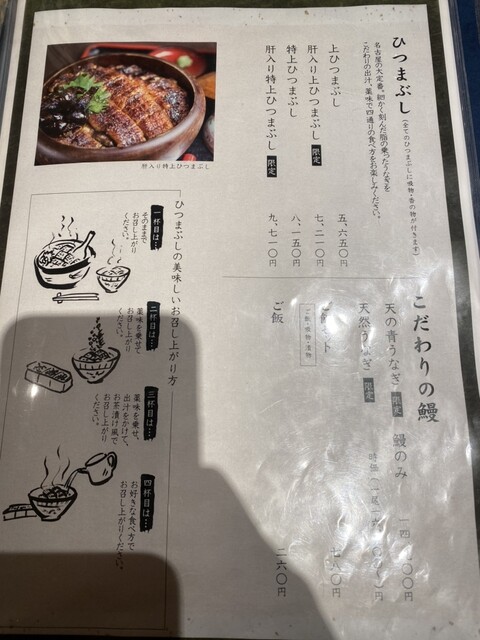 ひつまぶし（全てのひつまぶしに吸物・香の物が付きます）
名古屋の大定番。細かく刻んだ脂の乗ったうなぎを
こだわりの出汁、薬味で四通りの食べ方をお楽しみください。
上ひつまぶし 五、六五〇円
肝入り上ひつまぶし 限定 七、二一〇円
特上ひつまぶし 八、一五〇円
肝入り特上ひつまぶし 限定 九、七一〇円
肝入り特上ひつまぶし
こだわりの鰻
鰻のみ
天の青うなぎ 限定
天然うなぎ 限定 時価
ご飯・吸物・漬物
ご飯 二六〇円
ひつまぶしの美味しいお召し上がり方
一杯目は…
そのままで
お召し上がり
ください。
二杯目は…
薬味を乗せて
お召し上がり
ください。
三杯目は…
薬味を乗せ、
出汁をかけて、
お茶漬け風で
お召し上がり
ください。
四杯目は…
お好きな食べ方で
お召し上がりください。